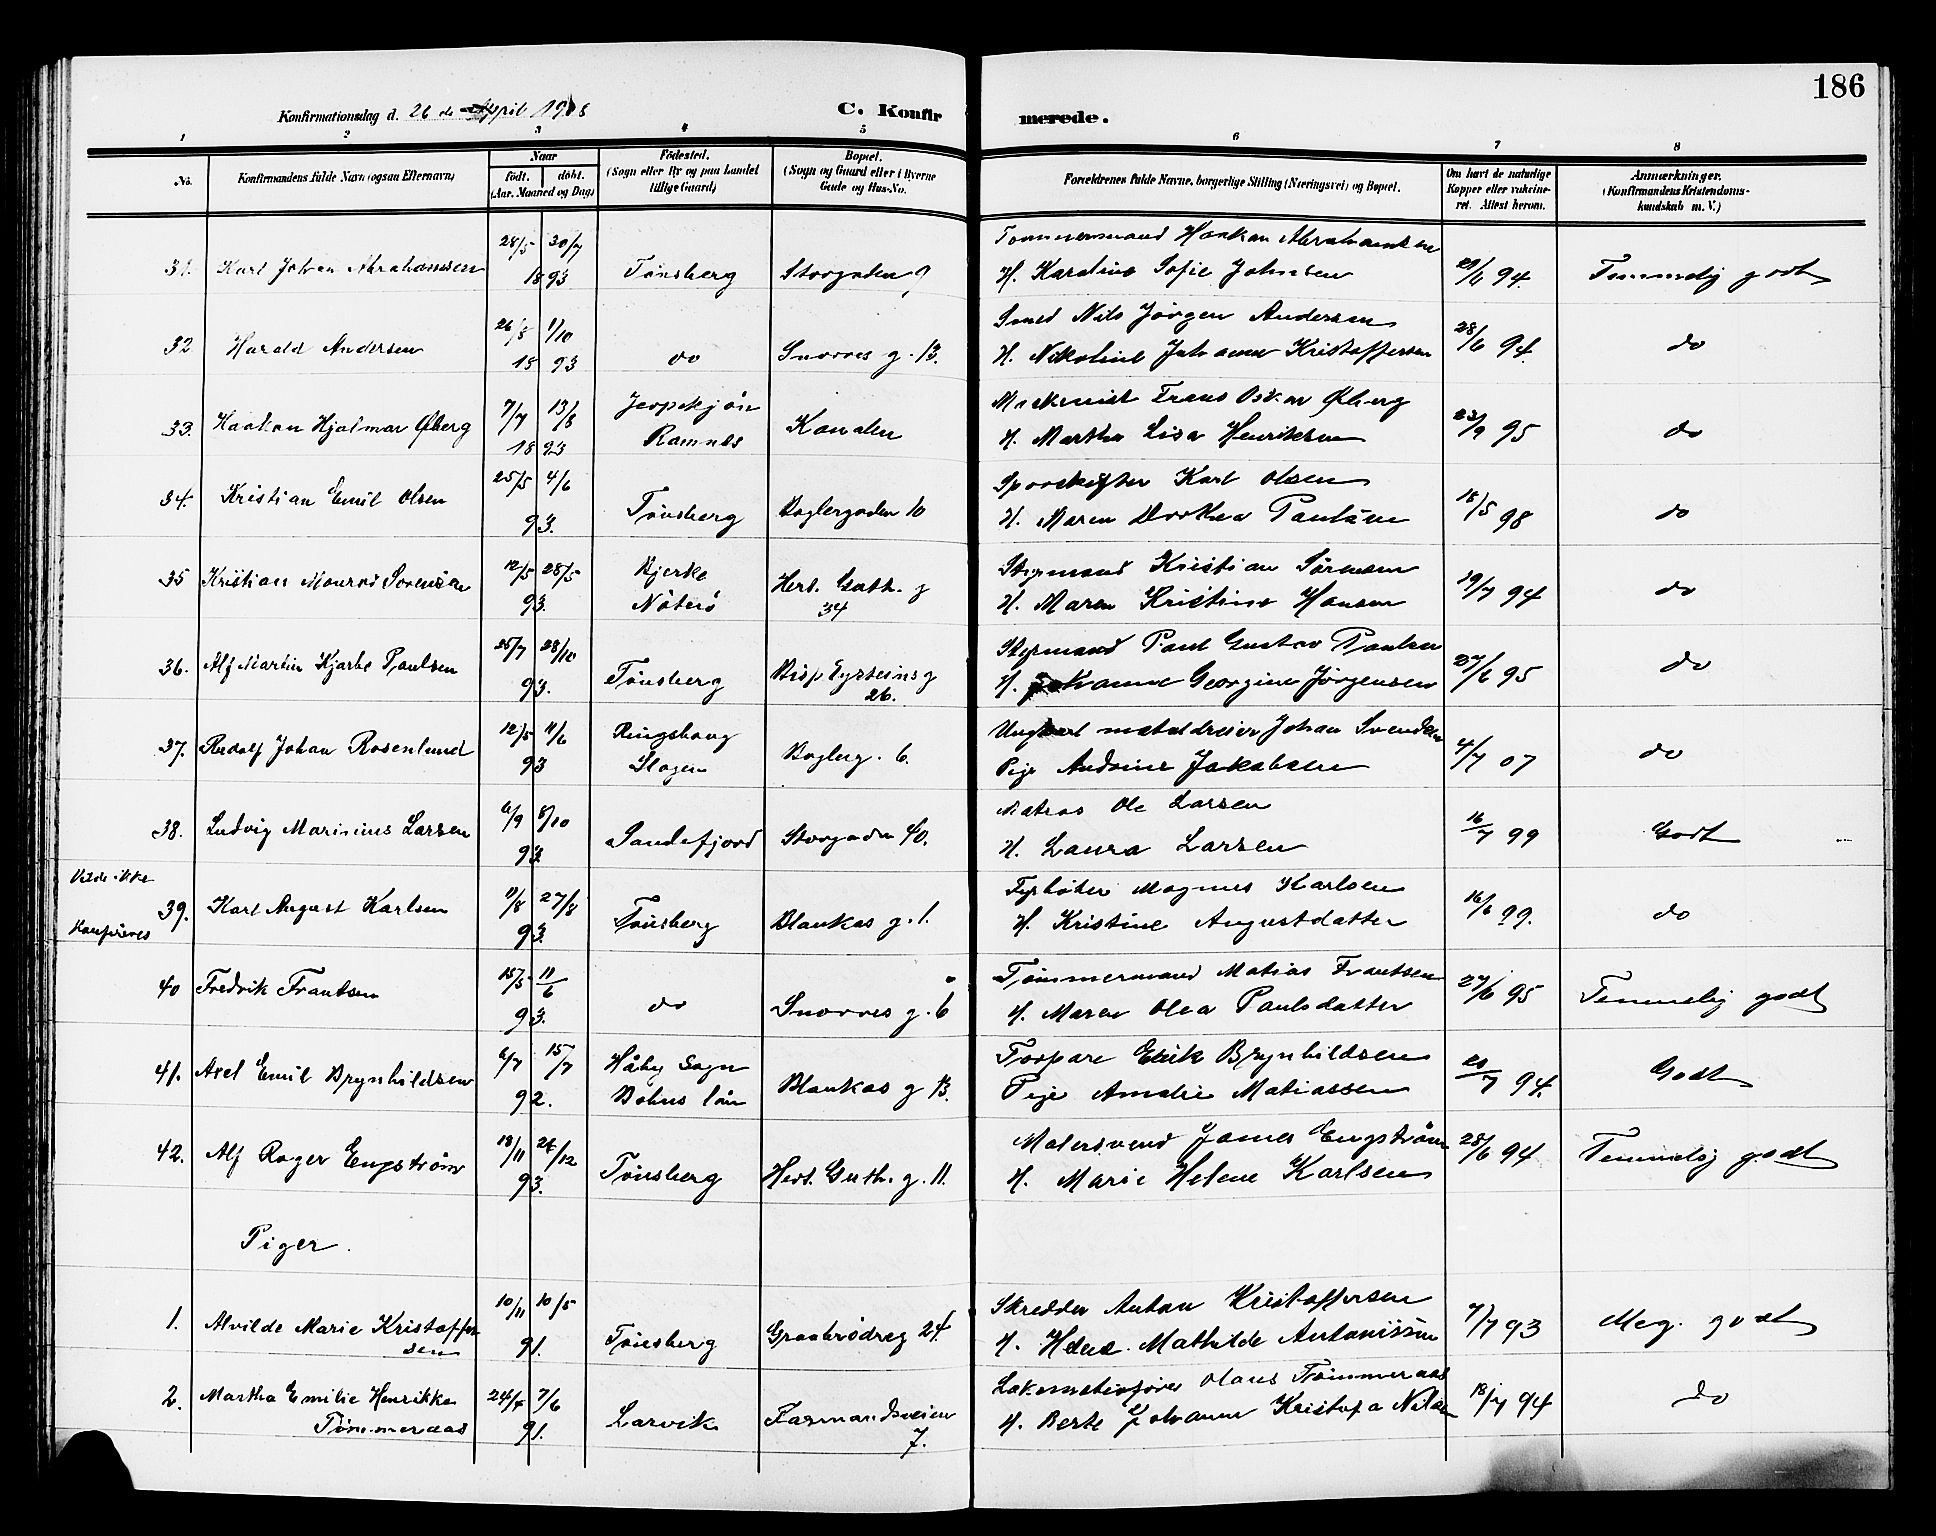 186
Konfirmationsdag d. 26 de April 1908 C. Konfir merede.
1 2 3 4 5 6 7 8
No. Konfirmandens fulde Navn (ogsaa Efternavn) Naar født. døbt. (Aar, Maaned og Dag) Fødested. (Sogn eller By og paa Landet tillige Gaard) Bopæl. (Sogn og Gaard eller i Byerne Gade og Hus-No. Forældrenes fulde Navne, borgerlige Stilling (Næringsvei) og Bopæl. Om havt de naturlige Kopper eller vakcineret. Attest herom. Anmærkninger. (Konfirmandens Kristendomskundskab m. V.)
28/5 30/7 Tømmermand Haakan Abrahamsen
31. Karl Johan Abrahamsen 1893 Tønsberg Storgaden 9 H. Karoline Sofie Johnsen 94. Temmelig godt
26/8 1/10 Smed Nils Jørgen Andersen
32 Harald Andersen 1893 do Snorres g. 13. H. Nikoline Johanne Kristoffersen 28/6 94. do
7/7 13/8 Jerpekjøn Maskinist Frans Oskar Øberg
33. Haakon Hjalmar Øberg 1893 Ramnes Kanalen H. Martha Lisa Henriksen 23/9 95 do
25/5 4/6 Sporskifter Karl Olsen
34. Kristian Emil Olsen 93. Tønsberg Baglergaden 10 H. Maren Dorthea Paulsen 18/5 98 do
12/5 28/5 Bjerke Styrmand Kristian Sørensen
35 Kristian Monrad Sørensen 93. Nøterø Hert. Guth. g 34 H. Maren Kristine Hansen 19/7 94 do
25/7 28/10 Styrmand Paul Gustav Paulsen
36. Alf Martin Hjarbe Paulsen 93. Tønsberg Bisp Eysteins g 26. H. Johanne Georgine Jørgensen 27/6 95 do
12/5 11/6 Ringshaug Ungkarl metaldreier Johan Svendsen
37. Rudolf Johan Rosenlund 93 Slagen Baglerg. 6. Pige Andrine Jakobsen 4/7 07 do
6/9 8/10 Matros Ole Larsen
38. Ludvig Marinius Larsen 93 Sandefjord Storgaden 40. H. Laura Larsen 16/7 99 Godt
Vilde ikke
11/8 27/8 Fyrbøter Magnus Karlsen
39. Karl August Karlsen 93. Tønsberg Blankas g. 1. H. Kristine Augustdatter 16/6 99. do
Konfireres
15/5 11/6 Tømmermand Matias Frantsen
40 Fredrik Frantsen 93. do Snorres g. 6 H. Maren Olea Paulsdatter 27/6 95 Temmelig godt
6/7 15/7 Håby Sogn Torpare Erik Brynhildsen
41. Axel Emil Brynhildsen 92. Bohus län Blankas g 13. Pige Amalie Matiassen 94. Godt
18/11 26/12 Malersvend James Engstrøm
42. Alf Roger Engstrøm 93. Tønsberg Hert. Guth. g. 11. H. Marie Helene Karlsen 28/6 94 Temmelig godt
Piger.
10/11 10/5 Skredder Anton Kristoffersen
1. Alvilde Marie Kristoffersen 91. Tønsberg Graabrødreg 24. H. Helene Mathilde Antonissen 7/7 93 Meg. godt
24/4 7/6 Lokomotivfører Olaus Tømmeraas
2. Martha Emilie Henrikke Tømmeraas 91. Larvik Farmandsveien 7. H. Berte Johanne Kristofa Nilsen 18/7 94 do